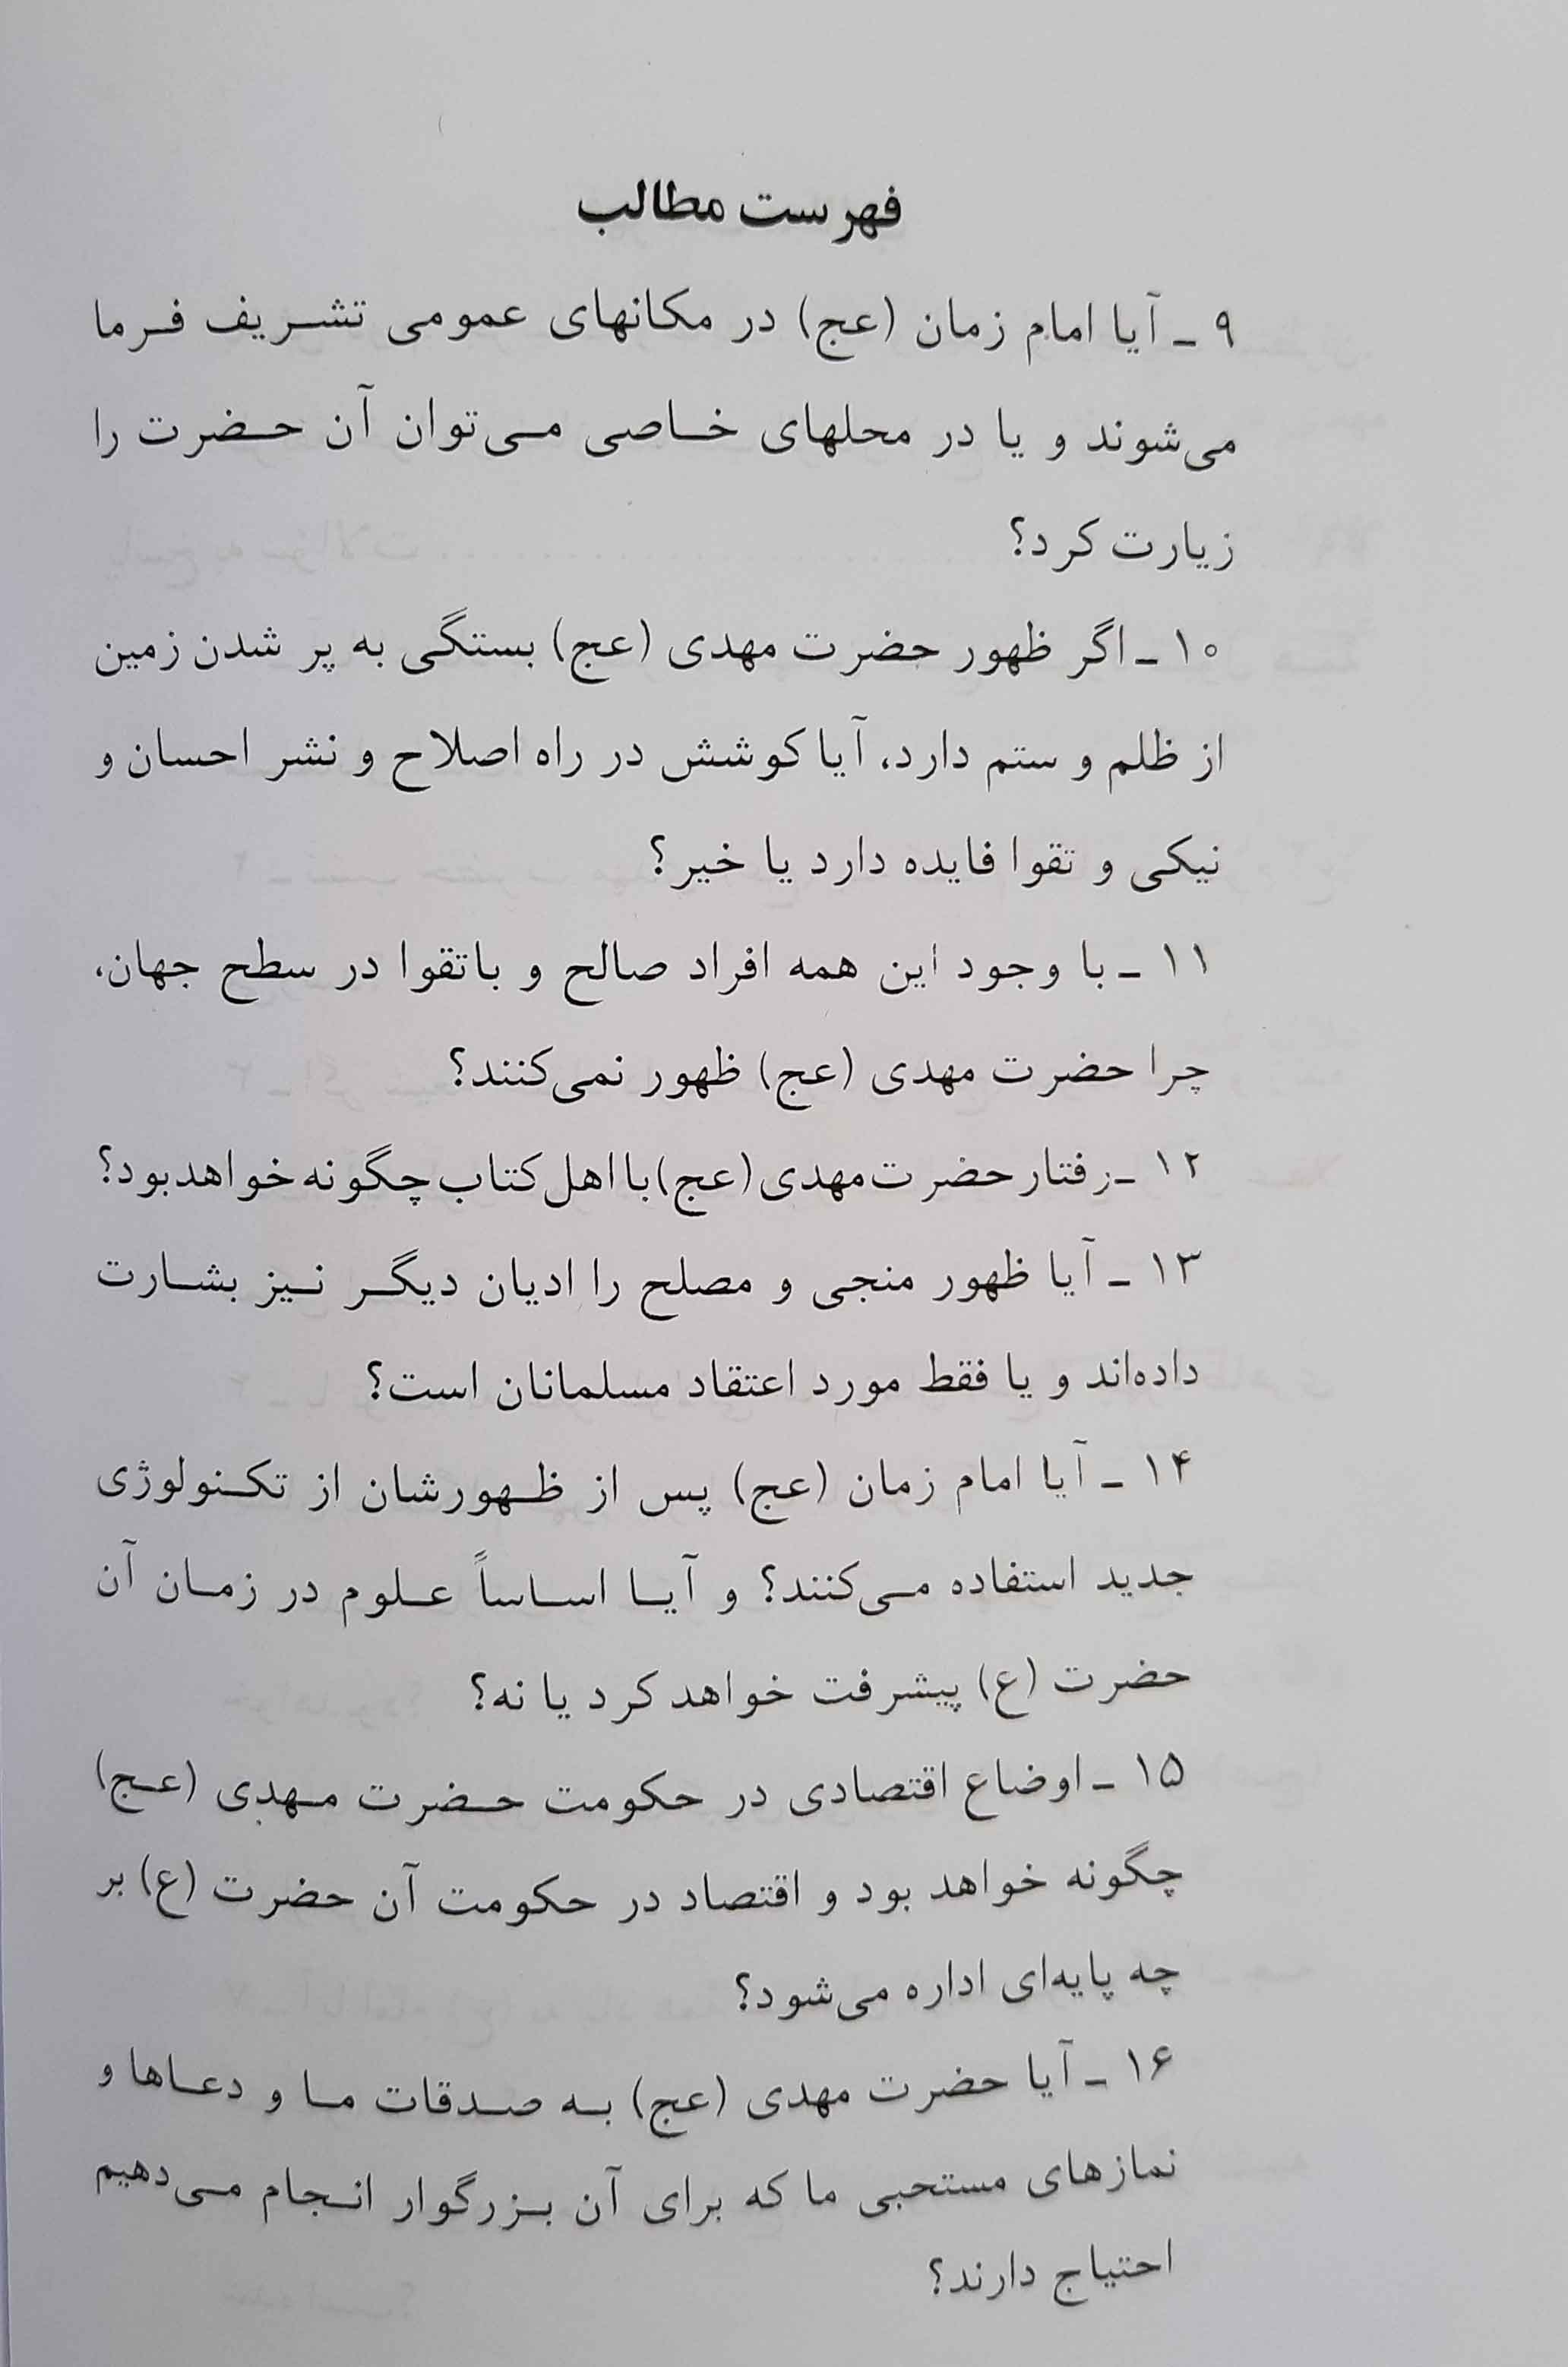 فهرست مطالب
۹ ـ آیا امام زمان (عج) در مکانهای عمومی تشریف فرما
می‌شوند و یا در محلهای خاصی می‌توان آن حضرت را
زیارت کرد؟
۱۰ ـ اگر ظهور حضرت مهدی (عج) بستگی به پر شدن زمین
از ظلم و ستم دارد، آیا کوشش در راه اصلاح و نشر احسان و
نیکی و تقوا فایده دارد یا خیر؟
۱۱ ـ با وجود این همه افراد صالح و باتقوا در سطح جهان،
چرا حضرت مهدی (عج) ظهور نمی‌کنند؟
۱۲ ـ رفتار حضرت مهدی (عج) با اهل کتاب چگونه خواهد بود؟
۱۳ ـ آیا ظهور منجی و مصلح را ادیان دیگر نیز بشارت
داده‌اند و یا فقط مورد اعتقاد مسلمانان است؟
۱۴ ـ آیا امام زمان (عج) پس از ظهورشان از تکنولوژی
جدید استفاده می‌کنند؟ و آیا اساساً علوم در زمان آن
حضرت (ع) پیشرفت خواهد کرد یا نه؟
۱۵ ـ اوضاع اقتصادی در حکومت حضرت مهدی (عج)
چگونه خواهد بود و اقتصاد در حکومت آن حضرت (ع) بر
چه پایه‌ای اداره می‌شود؟
۱۶ ـ آیا حضرت مهدی (عج) به صدقات ما و دعاها و
نمازهای مستحبی ما که برای آن بزرگوار انجام می‌دهیم
احتیاج دارند؟